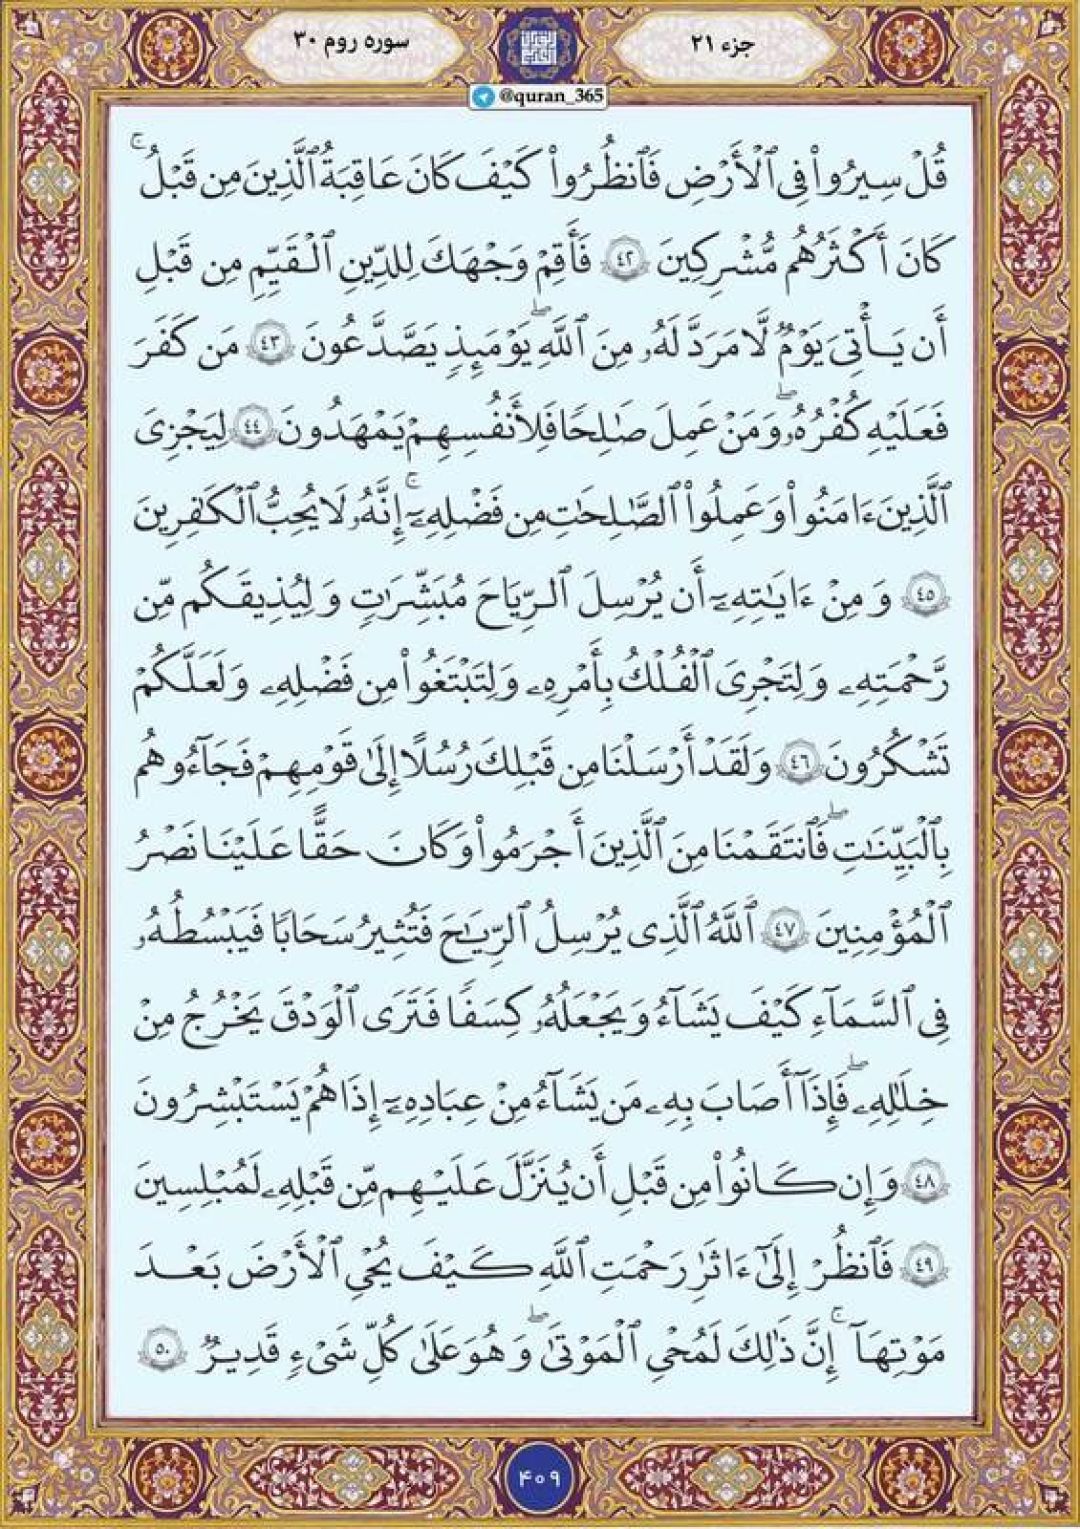 جزء ۲۱
سوره روم ۳۰
@quran_365
قُلْ سِيرُواْ فِي ٱلْأَرْضِ فَٱنظُرُواْ كَيْفَ كَانَ عَاقِبَةُ ٱلَّذِينَ مِن قَبْلُ ۚ
كَانَ أَكْثَرُهُم مُّشْرِكِينَ ٤٢ فَأَقِمْ وَجْهَكَ لِلدِّينِ ٱلْقَيِّمِ مِن قَبْلِ
أَن يَأْتِىَ يَوْمٌ لَّا مَرَدَّ لَهُۥ مِنَ ٱللَّهِ ۖ يَوْمَئِذٍ يَصَّدَّعُونَ ٤٣ مَن كَفَرَ
فَعَلَيْهِ كُفْرُهُۥ ۖ وَمَنْ عَمِلَ صَٰلِحًا فَلِأَنفُسِهِمْ يَمْهَدُونَ ٤٤ لِيَجْزِىَ
ٱلَّذِينَ ءَامَنُواْ وَعَمِلُواْ ٱلصَّٰلِحَٰتِ مِن فَضْلِهِۦٓ ۚ إِنَّهُۥ لَا يُحِبُّ ٱلْكَٰفِرِينَ
٤٥ وَمِنْ ءَايَٰتِهِۦٓ أَن يُرْسِلَ ٱلرِّيَاحَ مُبَشِّرَٰتٍ وَلِيُذِيقَكُم مِّن
رَّحْمَتِهِۦ وَلِتَجْرِىَ ٱلْفُلْكُ بِأَمْرِهِۦ وَلِتَبْتَغُواْ مِن فَضْلِهِۦ وَلَعَلَّكُمْ
تَشْكُرُونَ ٤٦ وَلَقَدْ أَرْسَلْنَا مِن قَبْلِكَ رُسُلًا إِلَىٰ قَوْمِهِمْ فَجَآءُوهُم
بِٱلْبَيِّنَٰتِ ۖ فَٱنتَقَمْنَا مِنَ ٱلَّذِينَ أَجْرَمُواْ وَكَانَ حَقًّا عَلَيْنَا نَصْرُ
ٱلْمُؤْمِنِينَ ٤٧ ٱللَّهُ ٱلَّذِى يُرْسِلُ ٱلرِّيَٰحَ فَتُثِيرُ سَحَابًا فَيَبْسُطُهُۥ
فِى ٱلسَّمَآءِ كَيْفَ يَشَآءُ وَيَجْعَلُهُۥ كِسَفًا فَتَرَى ٱلْوَدْقَ يَخْرُجُ مِنْ
خِلَٰلِهِۦ ۖ فَإِذَآ أَصَابَ بِهِۦ مَن يَشَآءُ مِنْ عِبَادِهِۦٓ إِذَا هُمْ يَسْتَبْشِرُونَ
٤٨ وَإِن كَانُواْ مِن قَبْلِ أَن يُنَزَّلَ عَلَيْهِم مِّن قَبْلِهِۦ لَمُبْلِسِينَ
٤٩ فَٱنظُرْ إِلَىٰٓ ءَاثَٰرِ رَحْمَتِ ٱللَّهِ كَيْفَ يُحْىِ ٱلْأَرْضَ بَعْدَ
مَوْتِهَآ ۚ إِنَّ ذَٰلِكَ لَمُحْىِ ٱلْمَوْتَىٰ ۖ وَهُوَ عَلَىٰ كُلِّ شَىْءٍ قَدِيرٌ ٥٠
۴۰۹